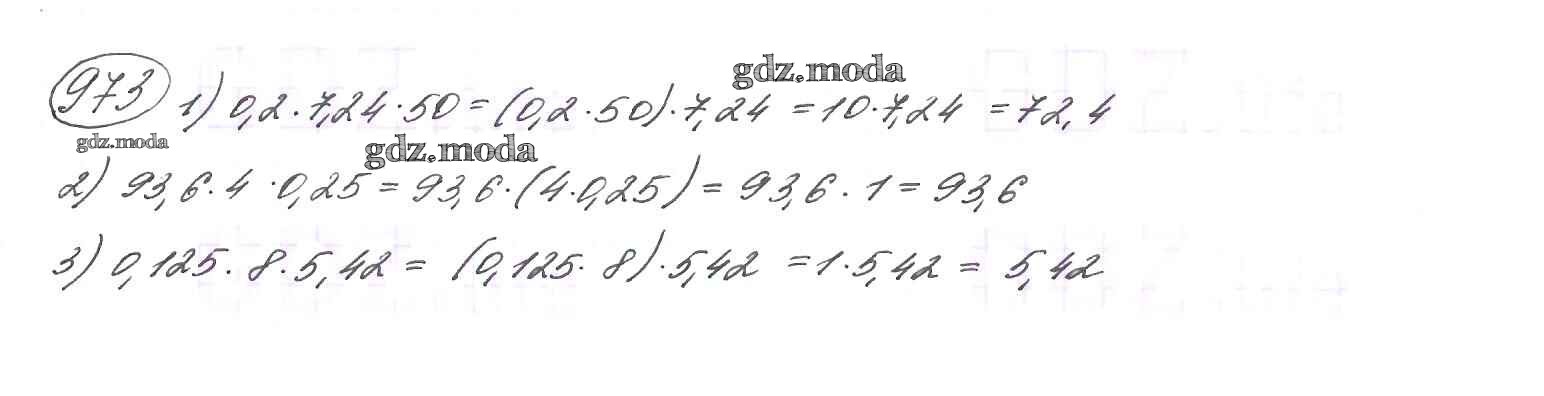 gdz.moda
973 1) 0,2·7,24·50=(0,2·50)·7,24=10·7,24=72,4
gdz.moda
gdz.moda
2) 93,6·4·0,25=93,6·(4·0,25)=93,6·1=93,6
3) 0,125·8·5,42=(0,125·8)·5,42=1·5,42=5,42